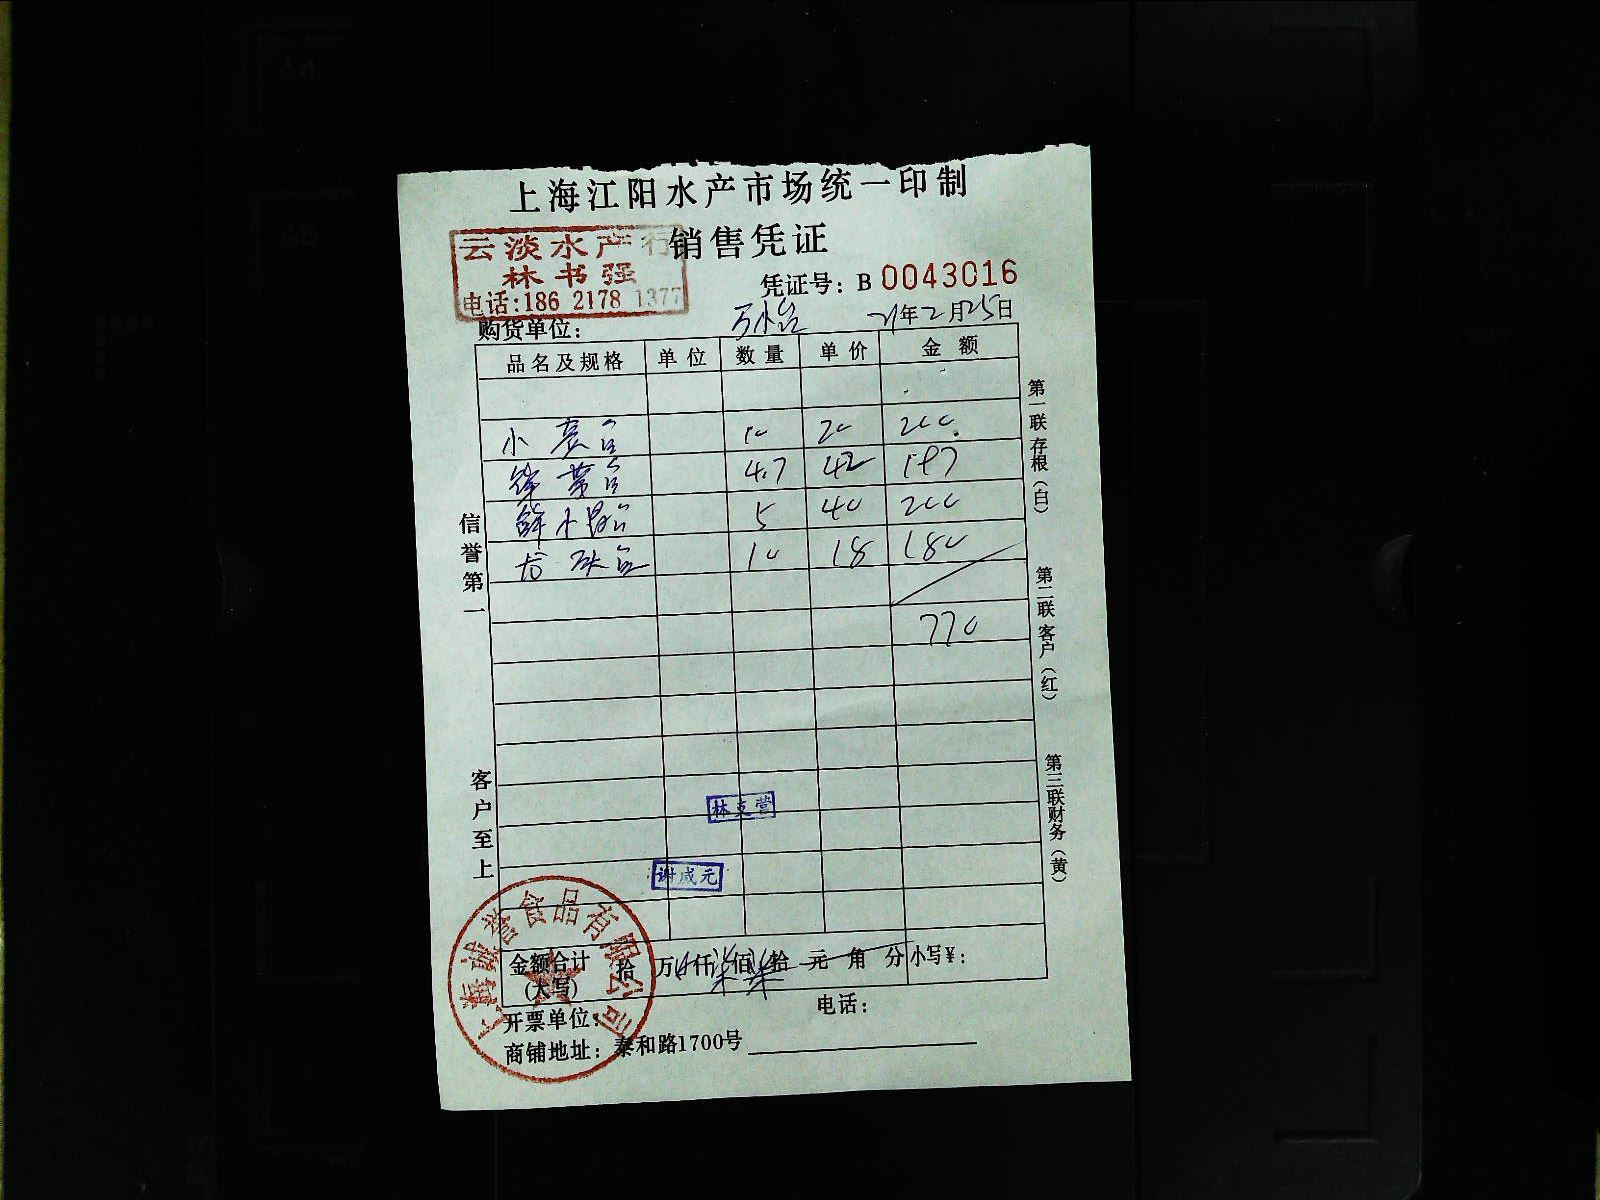 上海江阳水产市场统一印制
销售凭证
云淡水产行
林书强
电话:186 2178 1377
凭证号：B 0043016
购货单位：
21年2月25日
品名及规格 单位 数量 单价 金额
小 10 20 200
4.7 42 197
鲜小 5 40 200
10 18 180
770
信誉第一
客户至上
第一联 存根（白）
第二联 客户（红）
第三联 财务（黄）
林克营
谢咸元
上海诚誉食品有限公司
金额合计(大写) 拾 万 仟 柒佰 柒拾 元 角 分 小写¥：
开票单位： 电话：
商铺地址：泰和路1700号